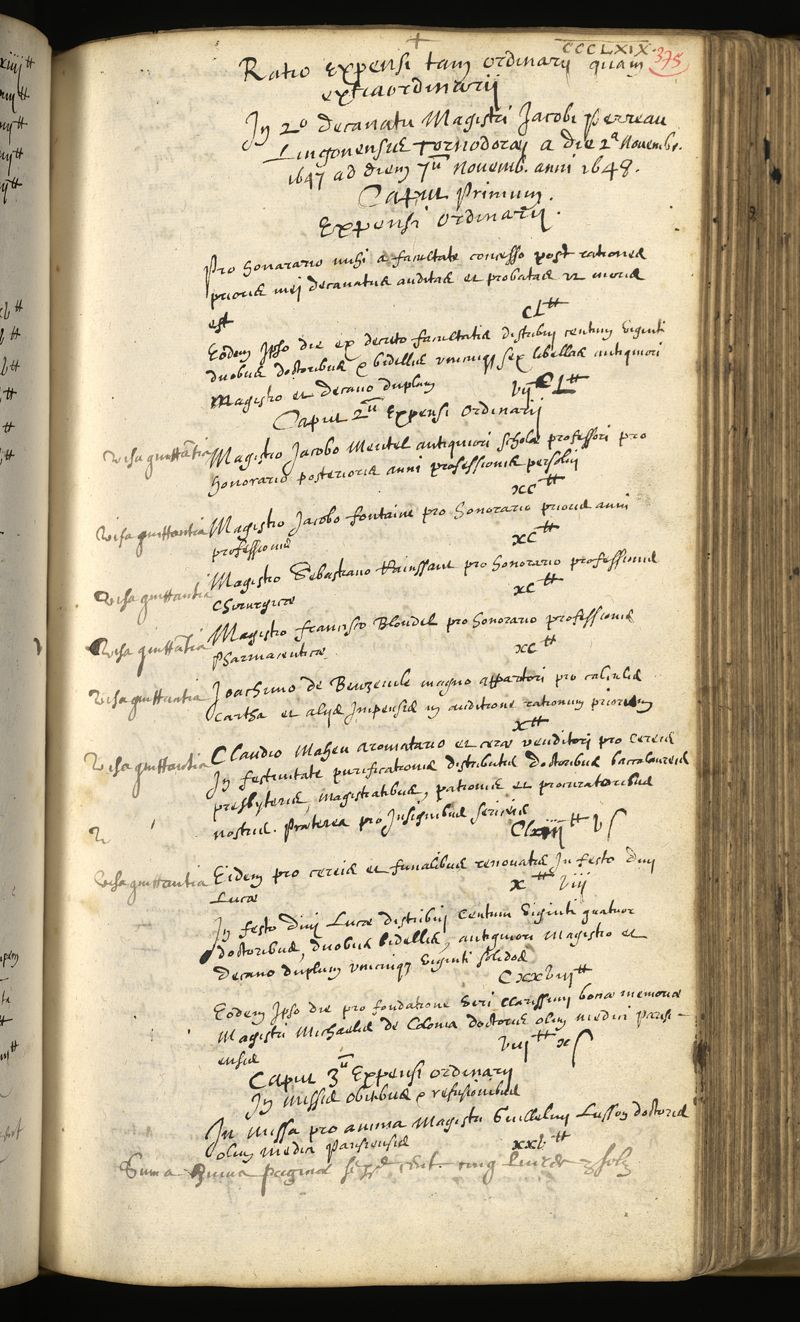 CCCLXIX.
375
Ratio Expensi tam ordinarij quam
extraordinarij
In 2o decanatu Magistri Jacobi Perreau
Lingonensis Tornodoraei a die 2a Novembr.
1647 ad diem 7um Novemb. anni 1648.
Caput Primum.
Expensi ordinarij.
Pro honorario mihi a facultate concesso post rationes
prioris mei decanatus auditas et probatas ut moris
est
CL ₶
Eodem Ipso die ex decreto facultatis distribui centum viginti
duobus doctoribus & bidellis unicuiq sex libellas antiquiori
Magistro et decano duplum
vij CL ₶
Caput 2um Expensi Ordinarij
visa quittantia Magistro Jacobo Mentel antiquiori scholae professori pro
honorario posterioris anni professionis persolui
xc ₶
visa quittantia Magistro Jacobo fontaine pro honorario prioris anni
professionis
xc ₶
visa quittantia Magistro Sebastiano Rainssant pro honorario professionis
Chirurgicae
xc ₶
visa quittantia Magistro francisco Blondel pro honorario professionis
Pharmaceuticae
xc ₶
visa quittantia Joachimo de Benzeville magno apparitori pro calculis
Cartha et alijs Impensis in auditione rationum priorum
x ₶
visa quittantia Claudio Maheu aromatario et cerae venditori pro cereis
In festivitate purificationis distributis doctoribus baccalaureis
presbyteris, magistratibus, patronis et procuratoribus
nostris. Praeterea pro Insignibus sericeis
Clxiiij ₶ v s
visa quittantia Eidem pro cereis et funalibus renovatis In festo divi
Lucae
x ₶ viij
In festo divi Lucae distribui Centum viginti quatuor
doctoribus, duobus bidellis, antiquiori Magistro et
decano duplum unicuiq viginti solidos
Cxxviij ₶
Eodem Ipso die pro fundatione viri clarissimi bonae memoriae
Magistri Michaelis de Colonia doctoris olim medici parisi-
ensis
viij ₶ x s
Caput 3um Expensi ordinarij
In missis obitibus & refusionibus
In missa pro anima Magistri Guillelmi Lusson doctoris
olim medici parisiensis
xxv ₶
Suma paginae cent. cinq livres